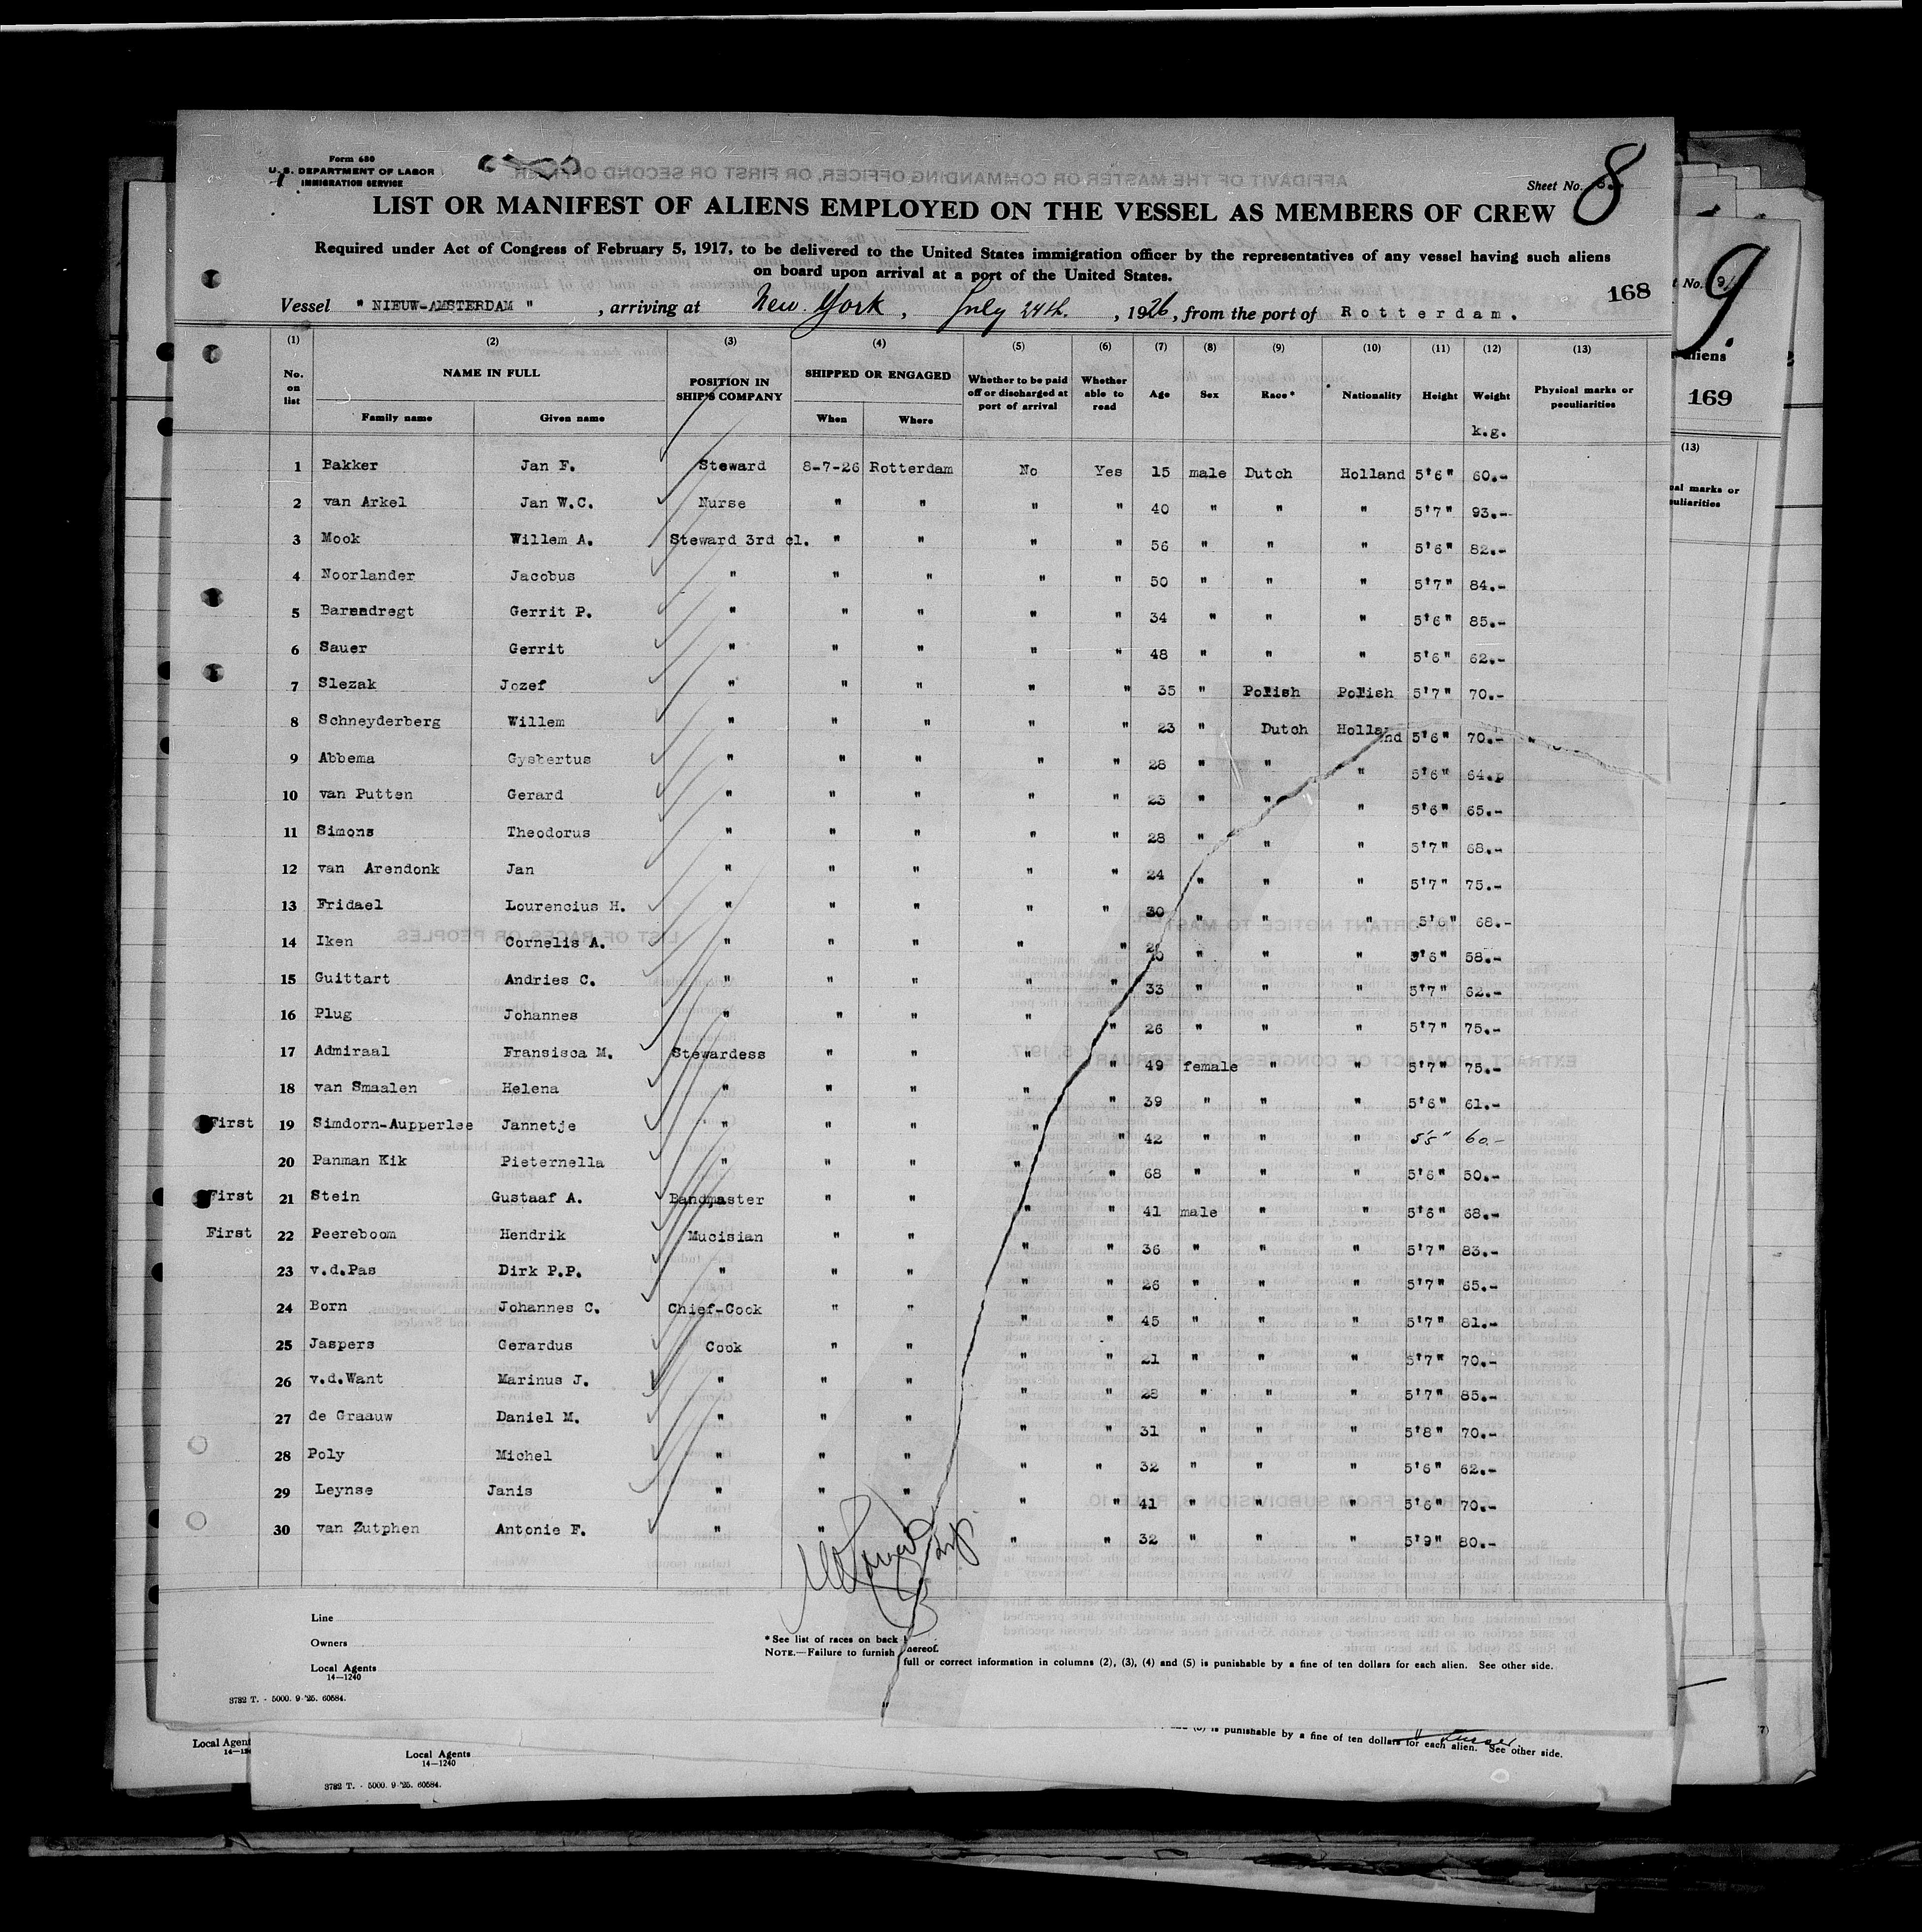 Form 680
U. S. DEPARTMENT OF LABOR
IMMIGRATION SERVICE
Sheet No. 8
LIST OR MANIFEST OF ALIENS EMPLOYED ON THE VESSEL AS MEMBERS OF CREW
Required under Act of Congress of February 5, 1917, to be delivered to the United States immigration officer by the representatives of any vessel having such aliens
on board upon arrival at a port of the United States.
168
Vessel " NIEUW-AMSTERDAM " , arriving at New York, July 24th. , 1926, from the port of Rotterdam.
(1) (2) (3) (4) (5) (6) (7) (8) (9) (10) (11) (12) (13)
No. on list NAME IN FULL POSITION IN SHIP'S COMPANY SHIPPED OR ENGAGED Whether to be paid off or discharged at port of arrival Whether able to read Age Sex Race* Nationality Height Weight Physical marks or peculiarities
Family name Given name When Where k.g.
1 Bakker Jan F. Steward 8-7-26 Rotterdam No Yes 15 male Dutch Holland 5'6" 60.-
2 van Arkel Jan W.C. Nurse " " " " 40 " " " 5'7" 93.-
3 Mook Willem A. Steward 3rd cl. " " " " 56 " " " 5'6" 82.-
4 Noorlander Jacobus " " " " " 50 " " " 5'7" 84.-
5 Barendregt Gerrit P. " " " " " 34 " " " 5'6" 85.-
6 Sauer Gerrit " " " " " 48 " " " 5'6" 62.-
7 Slezak Jozef " " " " " 35 " Polish Polish 5'7" 70.-
8 Schneyderberg Willem " " " " " 23 " Dutch Holland 5'6" 70.-
9 Abbema Gysbertus " " " " " 28 " " " 5'6" 64.p
10 van Putten Gerard " " " " " 23 " " " 5'6" 65.-
11 Simons Theodorus " " " " " 28 " " " 5'7" 68.-
12 van Arendonk Jan " " " " " 24 " " " 5'7" 75.-
13 Fridael Lourencius H. " " " " " 30 " " " 5'6" 68.-
14 Iken Cornelis A. " " " " " " " " 5'6" 58.-
15 Guittart Andries C. " " " " " 33 " " " 5'7" 62.-
16 Plug Johannes " " " " " 26 " " " 5'7" 75.-
17 Admiraal Fransisca M. Stewardess " " " " 49 female " " 5'7" 75.-
18 van Smaalen Helena " " " " " 39 " " " 5'6" 61.-
First 19 Simdorn-Aupperlee Jannetje " " " " " 42 " " " 5'5" 60.-
20 Panman Kik Pieternella " " " " " 68 " " " 5'6" 50.-
First 21 Stein Gustaaf A. Bandmaster " " " " 41 male " " 5'6" 68.-
First 22 Peereboom Hendrik Mucisian " " " " 36 " " " 5'7" 83.-
23 v.d.Pas Dirk P.P. " " " " " 26 " " " 5'7" 65.-
24 Born Johannes C. Chief-Cook " " " " 45 " " " 5'7" 81.-
25 Jaspers Gerardus Cook " " " " 21 " " " 5'7" 70.-
26 v.d.Want Marinus J. " " " " " 28 " " " 5'7" 85.-
27 de Graauw Daniel M. " " " " " 31 " " " 5'8" 70.-
28 Poly Michel " " " " " 32 " " " 5'6" 62.-
29 Leynse Janis " " " " " 41 " " " 5'6" 70.-
30 van Zutphen Antonie F. " " " " 32 " " " 5'9" 80.-
Line
Owners
Local Agents
14—1240
* See list of races on back hereof.
NOTE.—Failure to furnish full or correct information in columns (2), (3), (4) and (5) is punishable by a fine of ten dollars for each alien. See other side.
3782 T. - 5000. 9-'25. 60584.
t No. 9
9.
aliens
169
(13)
cal marks or
culiarities
Local Agent
14—124
Local Agents
14—1240
3782 T. - 5000. 9-'25. 60584.
and (5) is punishable by a fine of ten dollars for each alien. See other side.